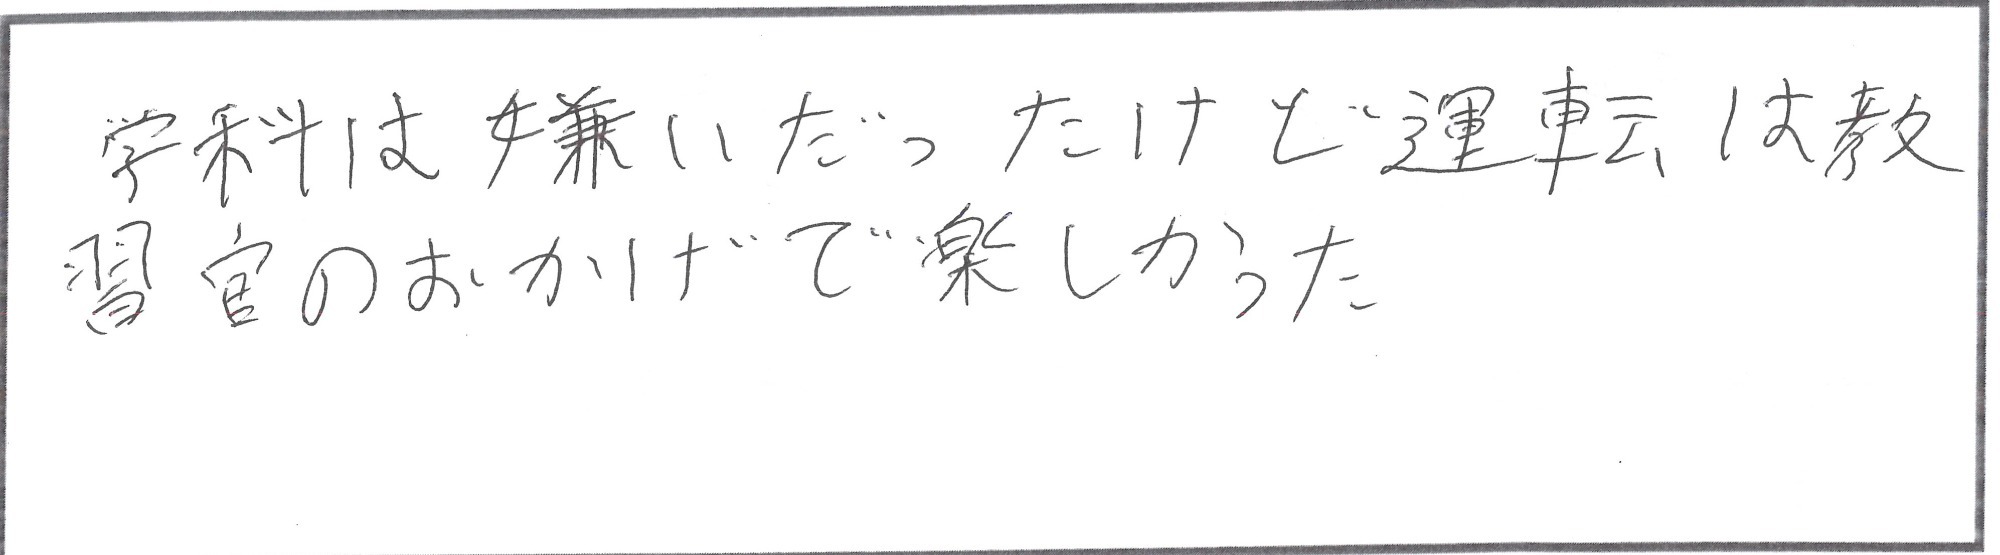 学科は嫌いだったけど運転は教
習官のおかげで楽しかった